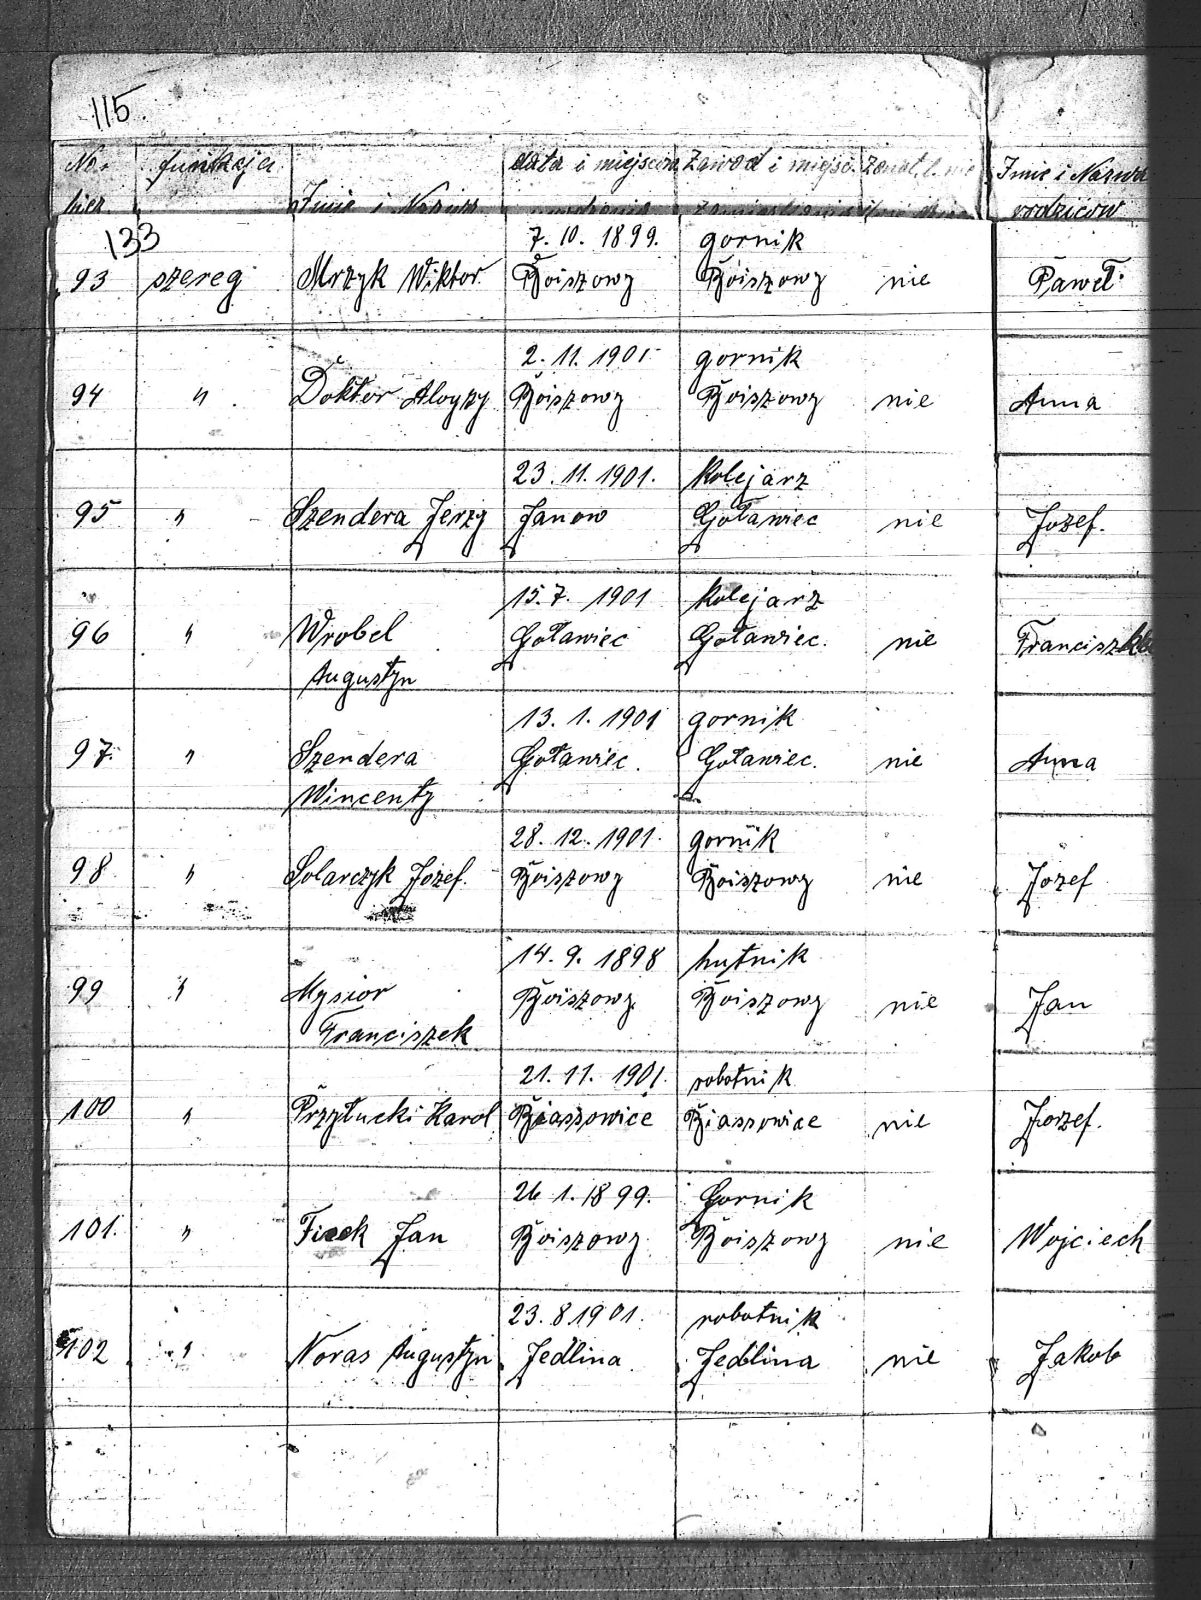 115.
No. funkcja data i miejscow. Zawod i miejsc. Zonat, l. nie Imie i Nazwa
biez. Imie i Nazwis. urodzenia zamieszkania rodzicow
133 7. 10. 1899. gornik
93 szereg. Mrzyk Wiktor. Boiszowy Boiszowy nie Paweł
2. 11. 1901 gornik
94 " Doktor Aloyzy Boiszowy Boiszowy nie Anna
23. 11. 1901. Kolejarz
95 " Szendera Jerzy Janow Goławiec nie Jozef.
15. 7. 1901 Kolejarz
96 " Wrobel Goławiec Goławiec. nie Franciszka
Augustyn
13. 1. 1901 gornik
97. " Szendera Goławiec. Goławiec. nie Anna
Wincenty
28. 12. 1901. gornik
98 " Solarczyk Jozef. Boiszowy Boiszowy nie Jozef
14. 9. 1898 hutnik
99 " Mysior Boiszowy Boiszowy nie Jan
Franciszek
21. 11. 1901. robotnik
100 " Przyłucki Karol Biassowice Biassowice nie Jozef.
26 1. 1899. Gornik
101. " Ficek Jan Boiszowy Boiszowy nie Wojciech
23. 8. 1901. robotnik
102 " Noras Augustyn Jedlina Jedlina nie Jakob